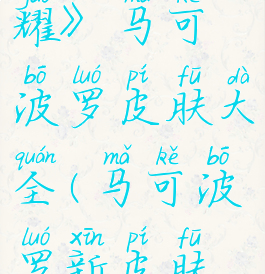 耀》马可
bō luó pí fū dà
波罗皮肤大
quán mǎ kě bō
全(马可波
luó xīn pí fū
罗新皮肤